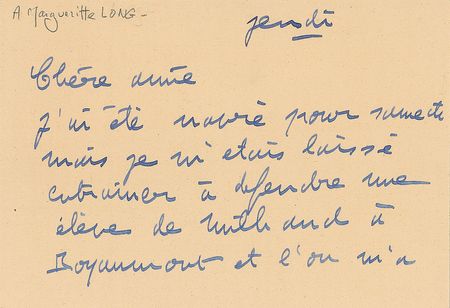 A Margueritte LONG -
jeudi
Chère amie
j'ai été navré pour samedi
mais je m'étais laissé
entrainer à défendre une
élève de Milhaud à
Royaumont et l'on m'a